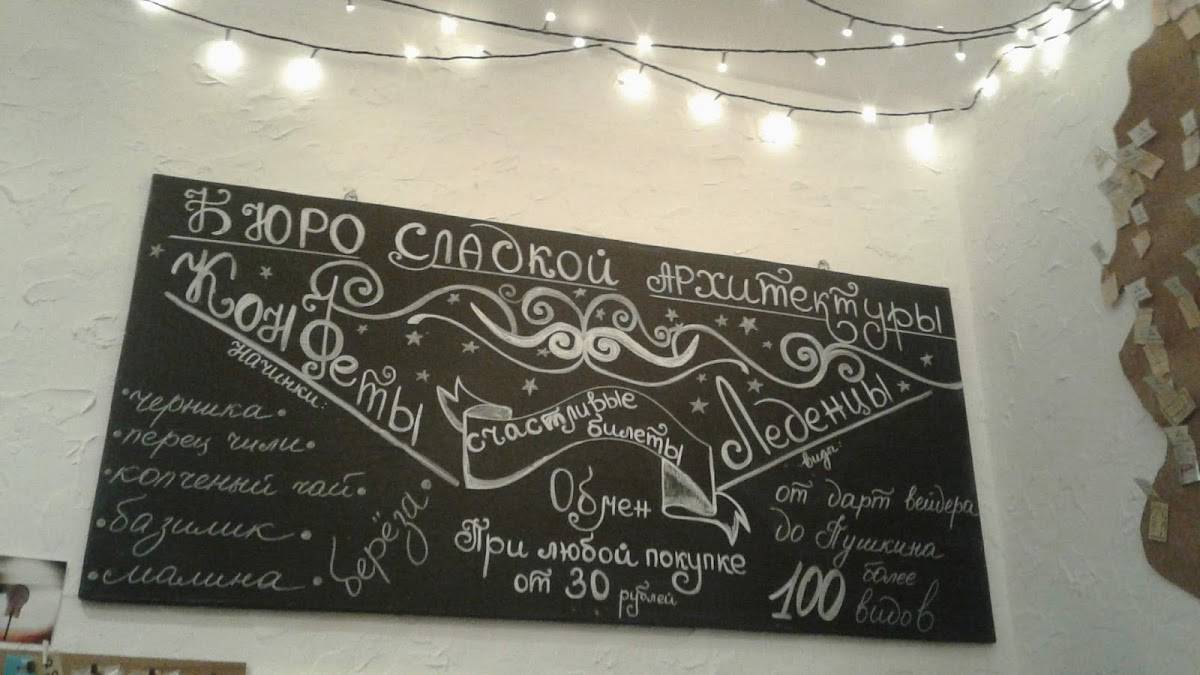 Бюро сладкой архитектуры
Конфеты
начинки:
• черника •
• перец чили •
• копченый чай •
• базилик •
• малина •
берёза •
счастливые
билеты
Обмен
При любой покупке
от 30 рублей
Леденцы
виды:
от дарт вейдера
до Пушкина
100 более
видов